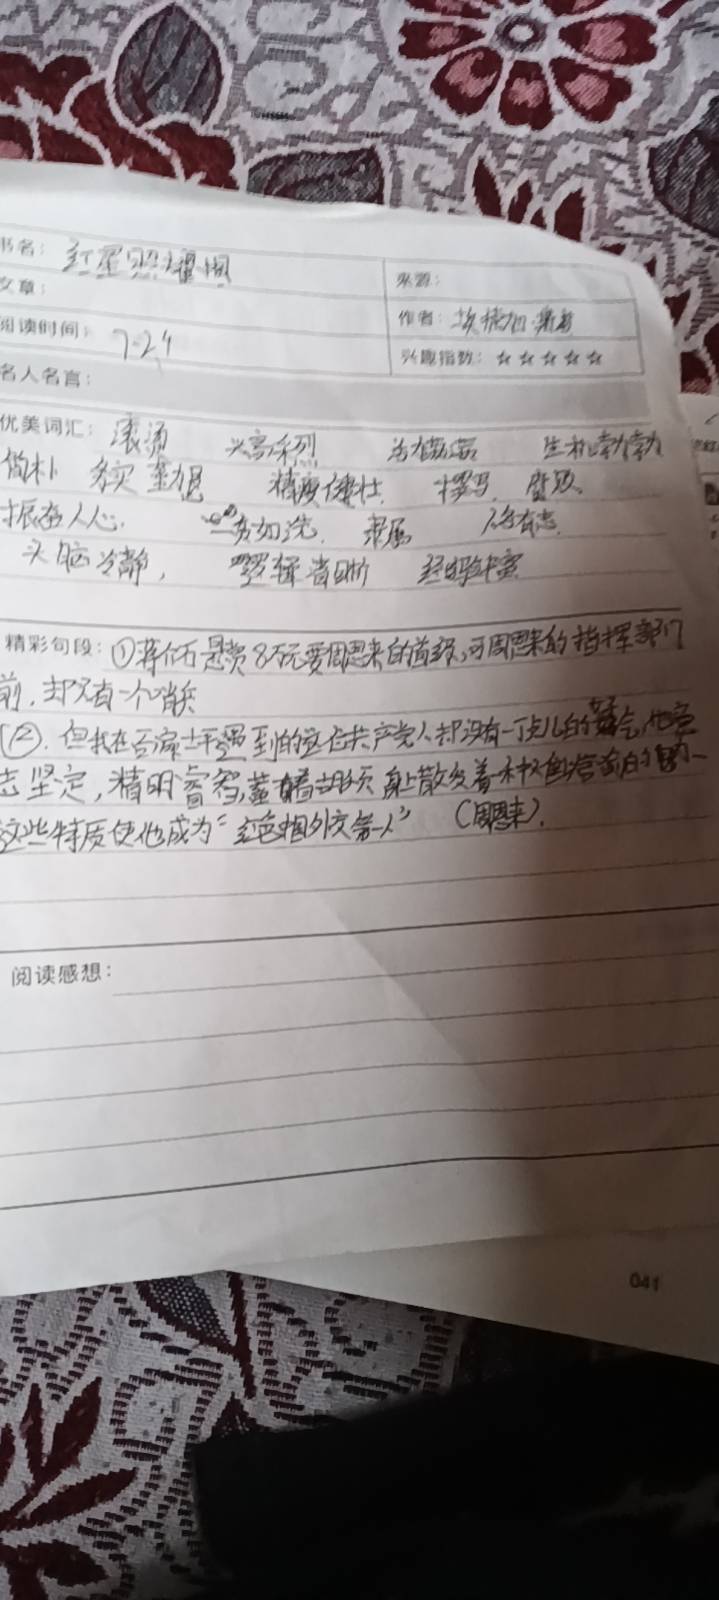 书名：红星照耀中国
来源：
文章：
作者：埃德加·斯诺
阅读时间：7.24
兴趣指数：☆☆☆☆☆
名人名言：
优美词汇：滚烫 兴高采烈 生机勃勃
简朴 务实 精瘦健壮 撰写 腐败
振奋人心. 一贫如洗. 隶属
头脑冷静, 逻辑清晰 经验丰富
精彩句段：①蒋介石悬赏8万元要周恩来的首级,可周恩来的指挥部门
前，却没有一个哨兵
②. 但我在百家坪遇到的这位共产党人却没有一丁点儿的
志坚定，精明睿智,蓄着胡须 身上散发着一种
这些特质使他成为“红色 第一人” （周恩来）.
阅读感想：
041